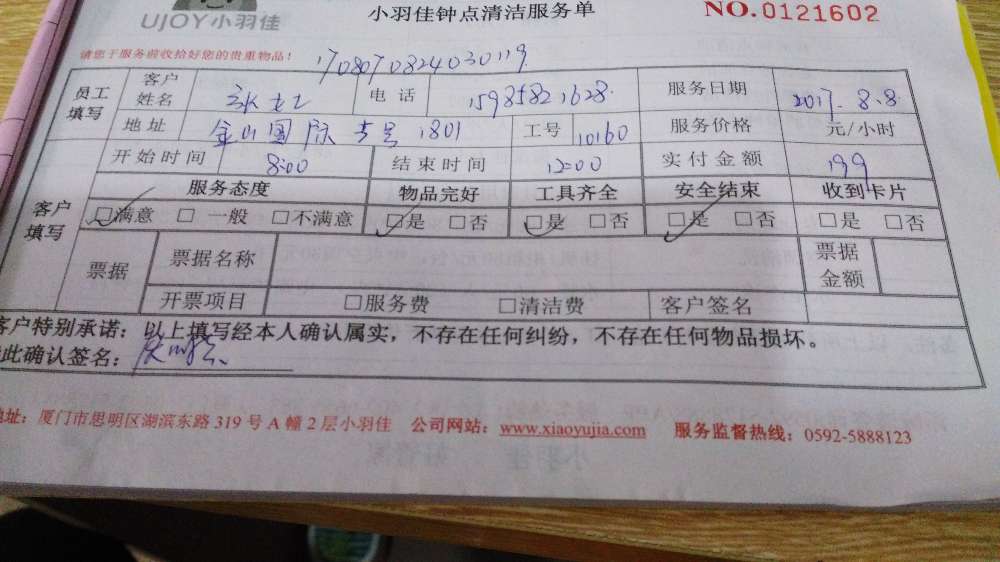 UJOY小羽佳 小羽佳钟点清洁服务单 NO.0121602
请您于服务前收拾好您的贵重物品! 1708070824030119
员工填写 客户姓名 电话 15985821628 服务日期 2017.8.8
地址 金山国际 号 1801 工号 10160 服务价格 元/小时
开始时间 8:00 结束时间 12:00 实付金额 199
客户填写 服务态度 物品完好 工具齐全 安全结束 收到卡片
□满意 □ 一般 □不满意 □是 □否 □是 □否 □是 □否 □是 □否
票据 票据名称 票据金额
开票项目 □服务费 □清洁费 客户签名
客户特别承诺：以上填写经本人确认属实，不存在任何纠纷，不存在任何物品损坏。
此确认签名：
地址：厦门市思明区湖滨东路 319 号 A 幢 2 层小羽佳 公司网站：www.xiaoyujia.com 服务监督热线：0592-5888123